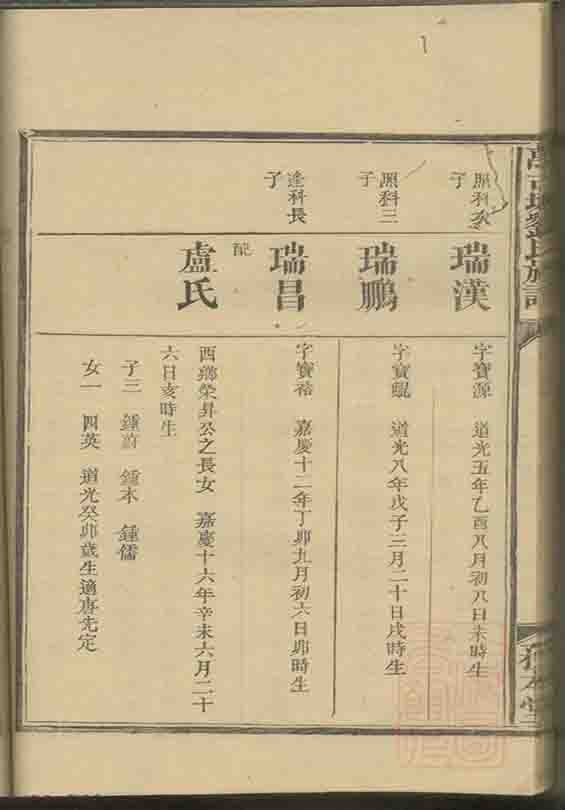 照科次子
瑞漢
字寶源 道光五年乙酉八月初八日未時生
照科三子
瑞鵬
字寶鯤 道光八年戊子三月二十日戌時生
逢科長子
瑞昌
字寶裕 嘉慶十二年丁卯九月初六日卯時生
配
盧氏
西鄉榮昇公之長女 嘉慶十六年辛未六月二十
六日亥時生
子三 鍾蔚 鍾本 鍾儒
女一 四英 道光癸卯歲生適唐先定